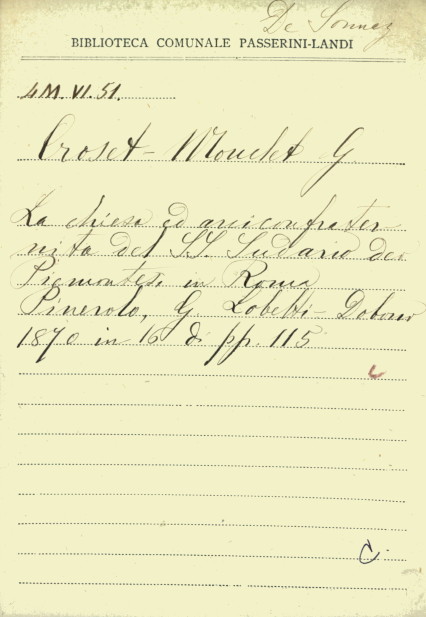 De Sonnaz
BIBLIOTECA COMUNALE PASSERINI-LANDI
4M.VI.51.
Croset-Mouchet G.
La chiesa ed arciconfrater
nita del SS. Sudario dei
Piemontesi in Roma
Pinerolo, G. Lobetti-Bodoni
1870 in 16 di pp. 115
C